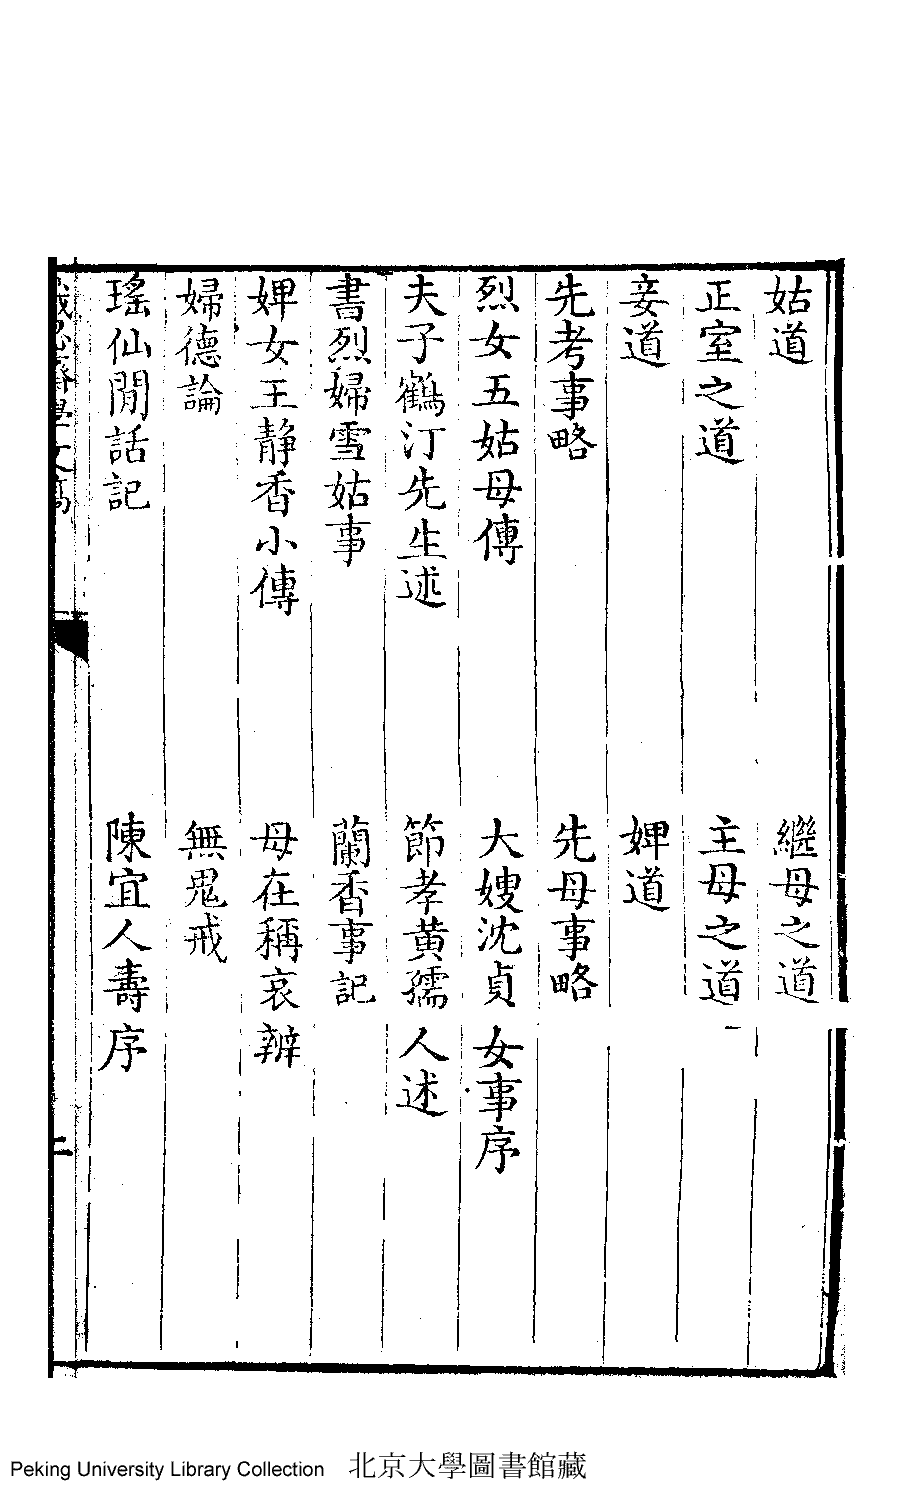 姑道　繼母之道
正室之道　主母之道
妾道　婢道
先考事略　先母事略
烈女五姑母傳　大嫂沈貞女事序
夫子鶴汀先生述　節孝黃孺人述
書烈婦雪姑事　蘭香事記
婢女王靜香小傳　母在稱哀辨
婦德論　無鬼戒
瑤仙閒話記　陳宜人壽序
齋學文稿
二
Peking University Library Collection 北京大學圖書館藏